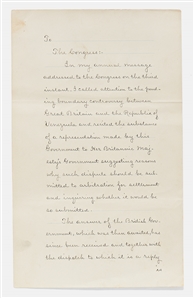 To
The Congress:
In my annual message
addressed to the Congress on the third
instant, I called attention to the pend-
ing boundary controversy between
Great Britain and the Republic of
Venezuela and recited the substance
of a representation made by this
Government to Her Britannic Maj-
esty's Government suggesting reasons
why such dispute should be sub-
mitted to arbitration for settlement
and inquiring whether it would
be so submitted.
The answer of the British Gov-
ernment, which was then awaited, has
since been received and together with
the dispatch to which it is a reply
is